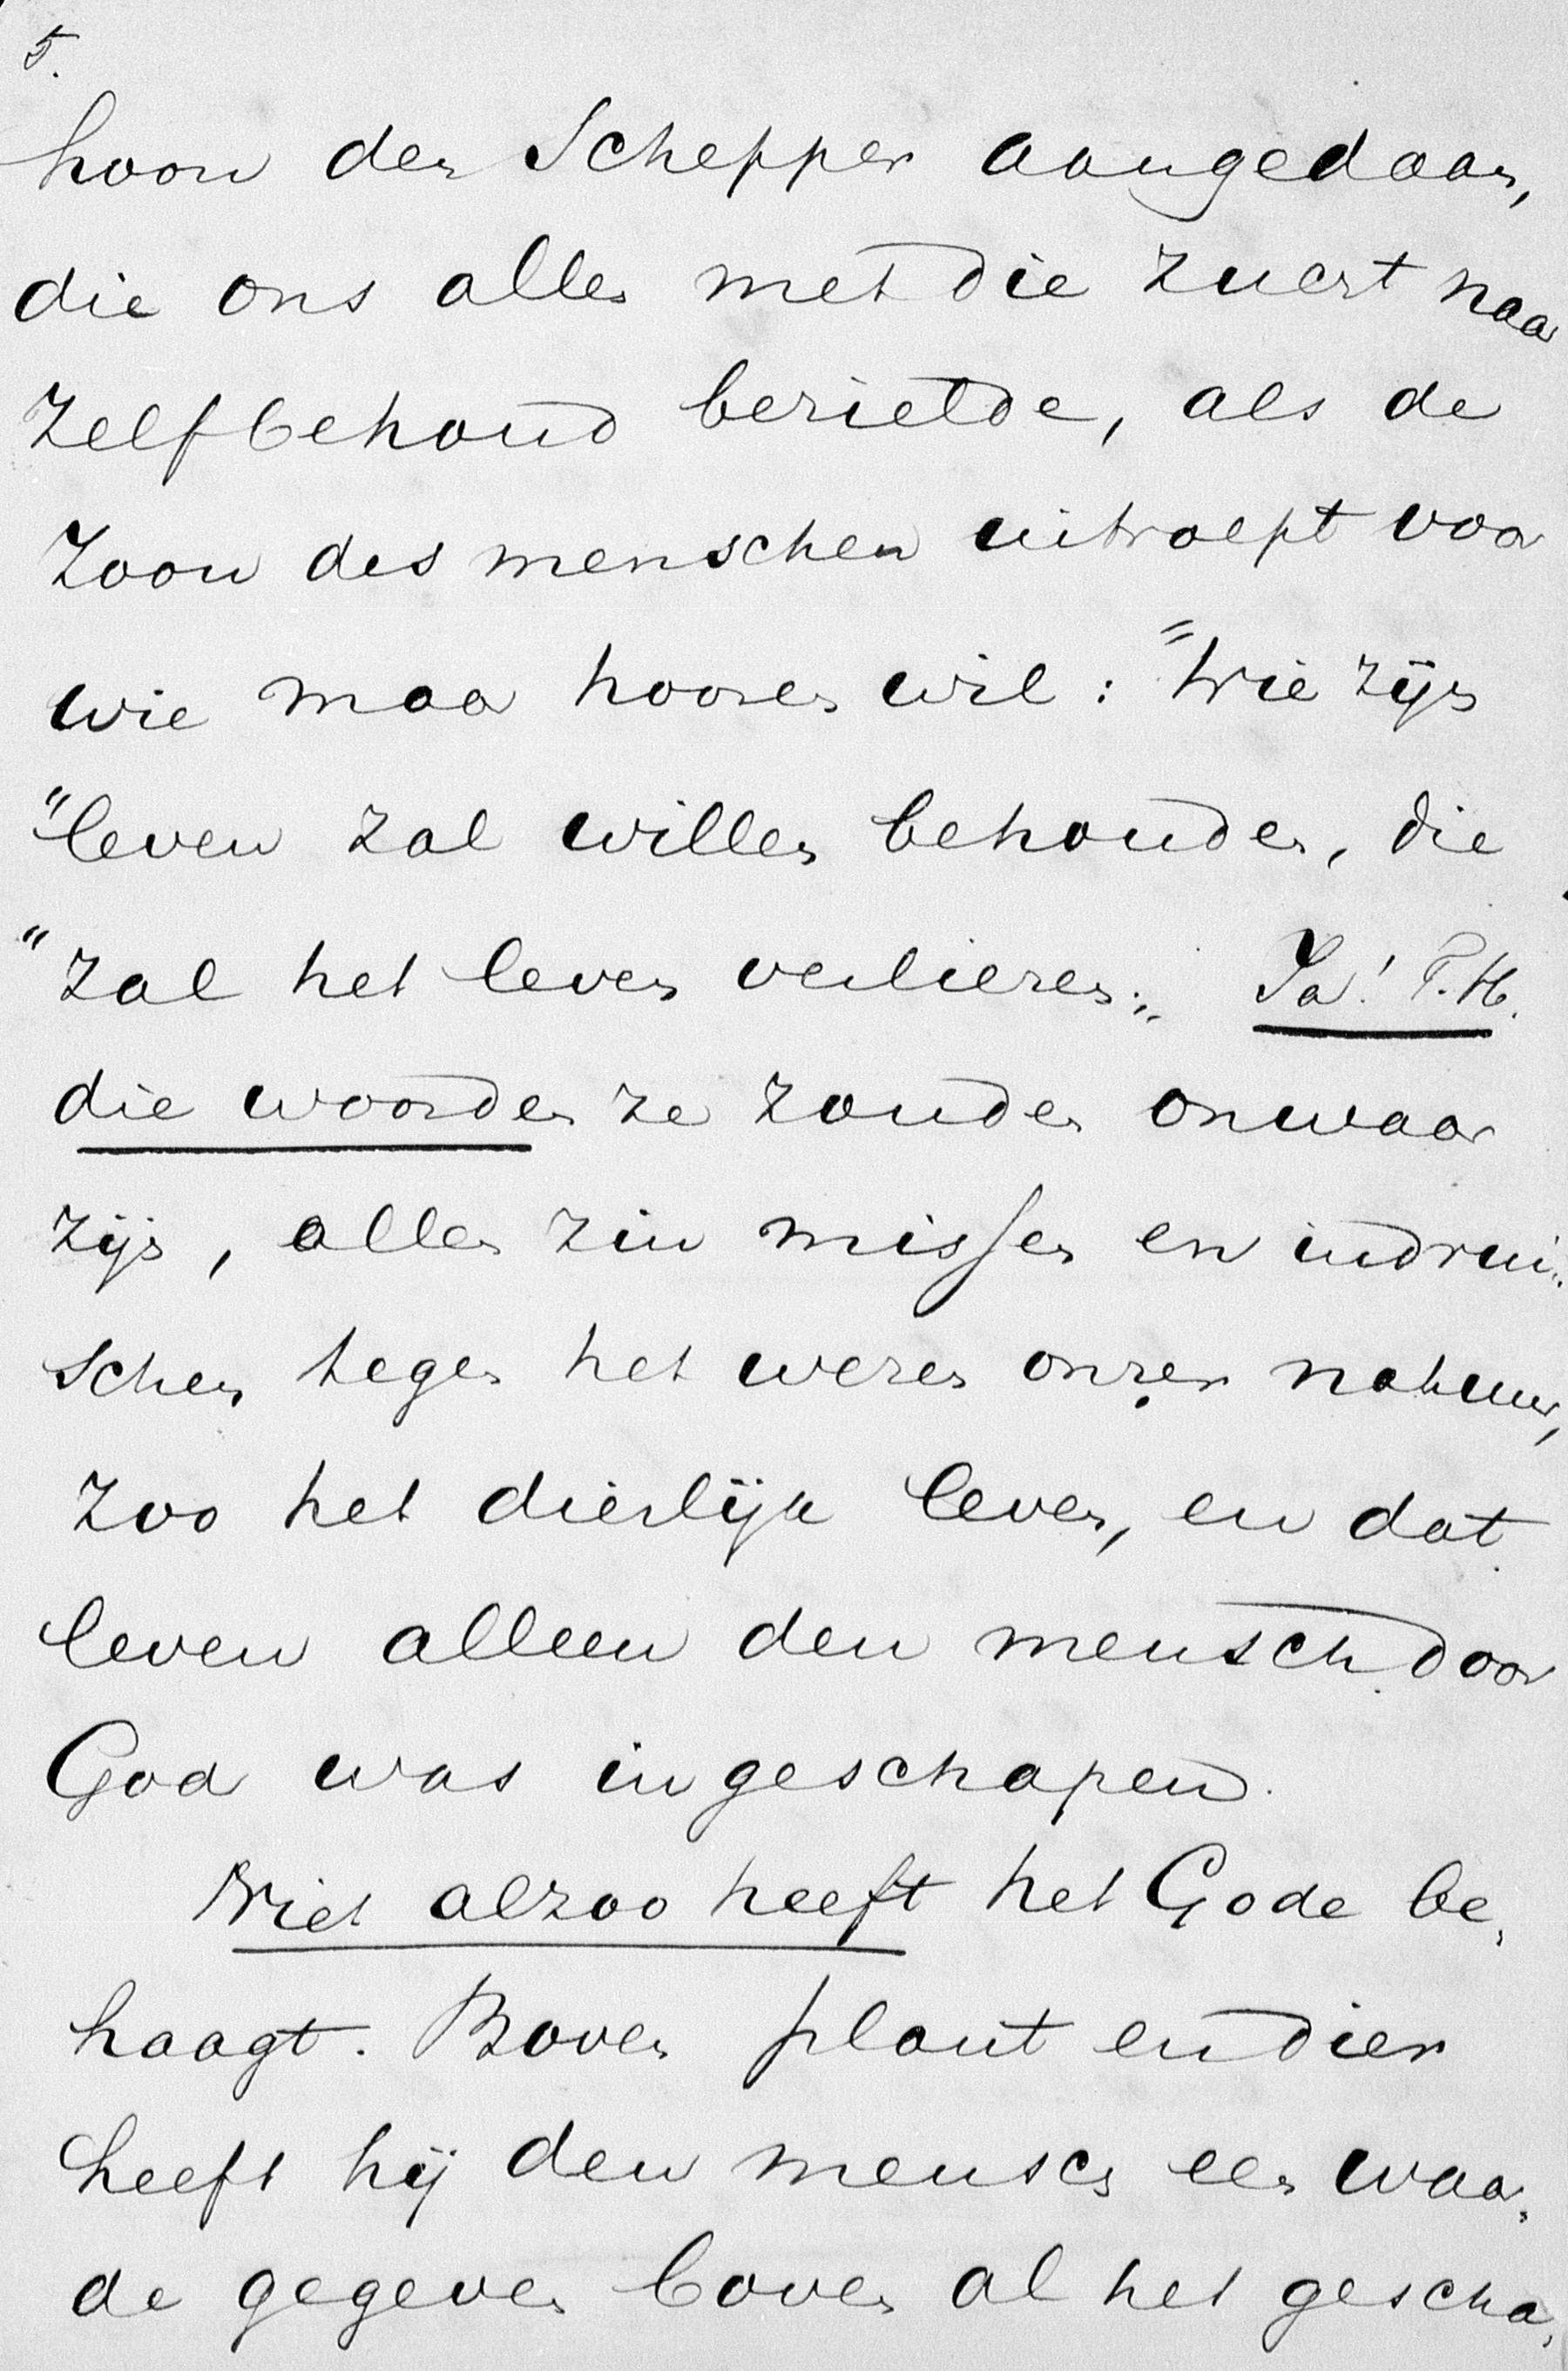 5.
hoon den Schepper aangedaan,
die ons allen met die zucht naar
zelfbehoud bezielde, als de
Zoon des menschen uitroept voor
wie maar hooren wil: "Wie zijn
"leven zal willen behouden, die
"zal het leven verliezen." Ja! T. H.
die woorden ze zouden onwaar
zijn, allen zin missen en indrui-
schen tegen het wezen onzer natuur,
zoo het dierlijk leven, en dat
leven alleen den mensch door
God was ingeschapen.
Niet alzoo heeft het Gode be-
haagt. Boven plant en dier
heeft hij den mensch een waar-
de gegeven boven al het gescha-